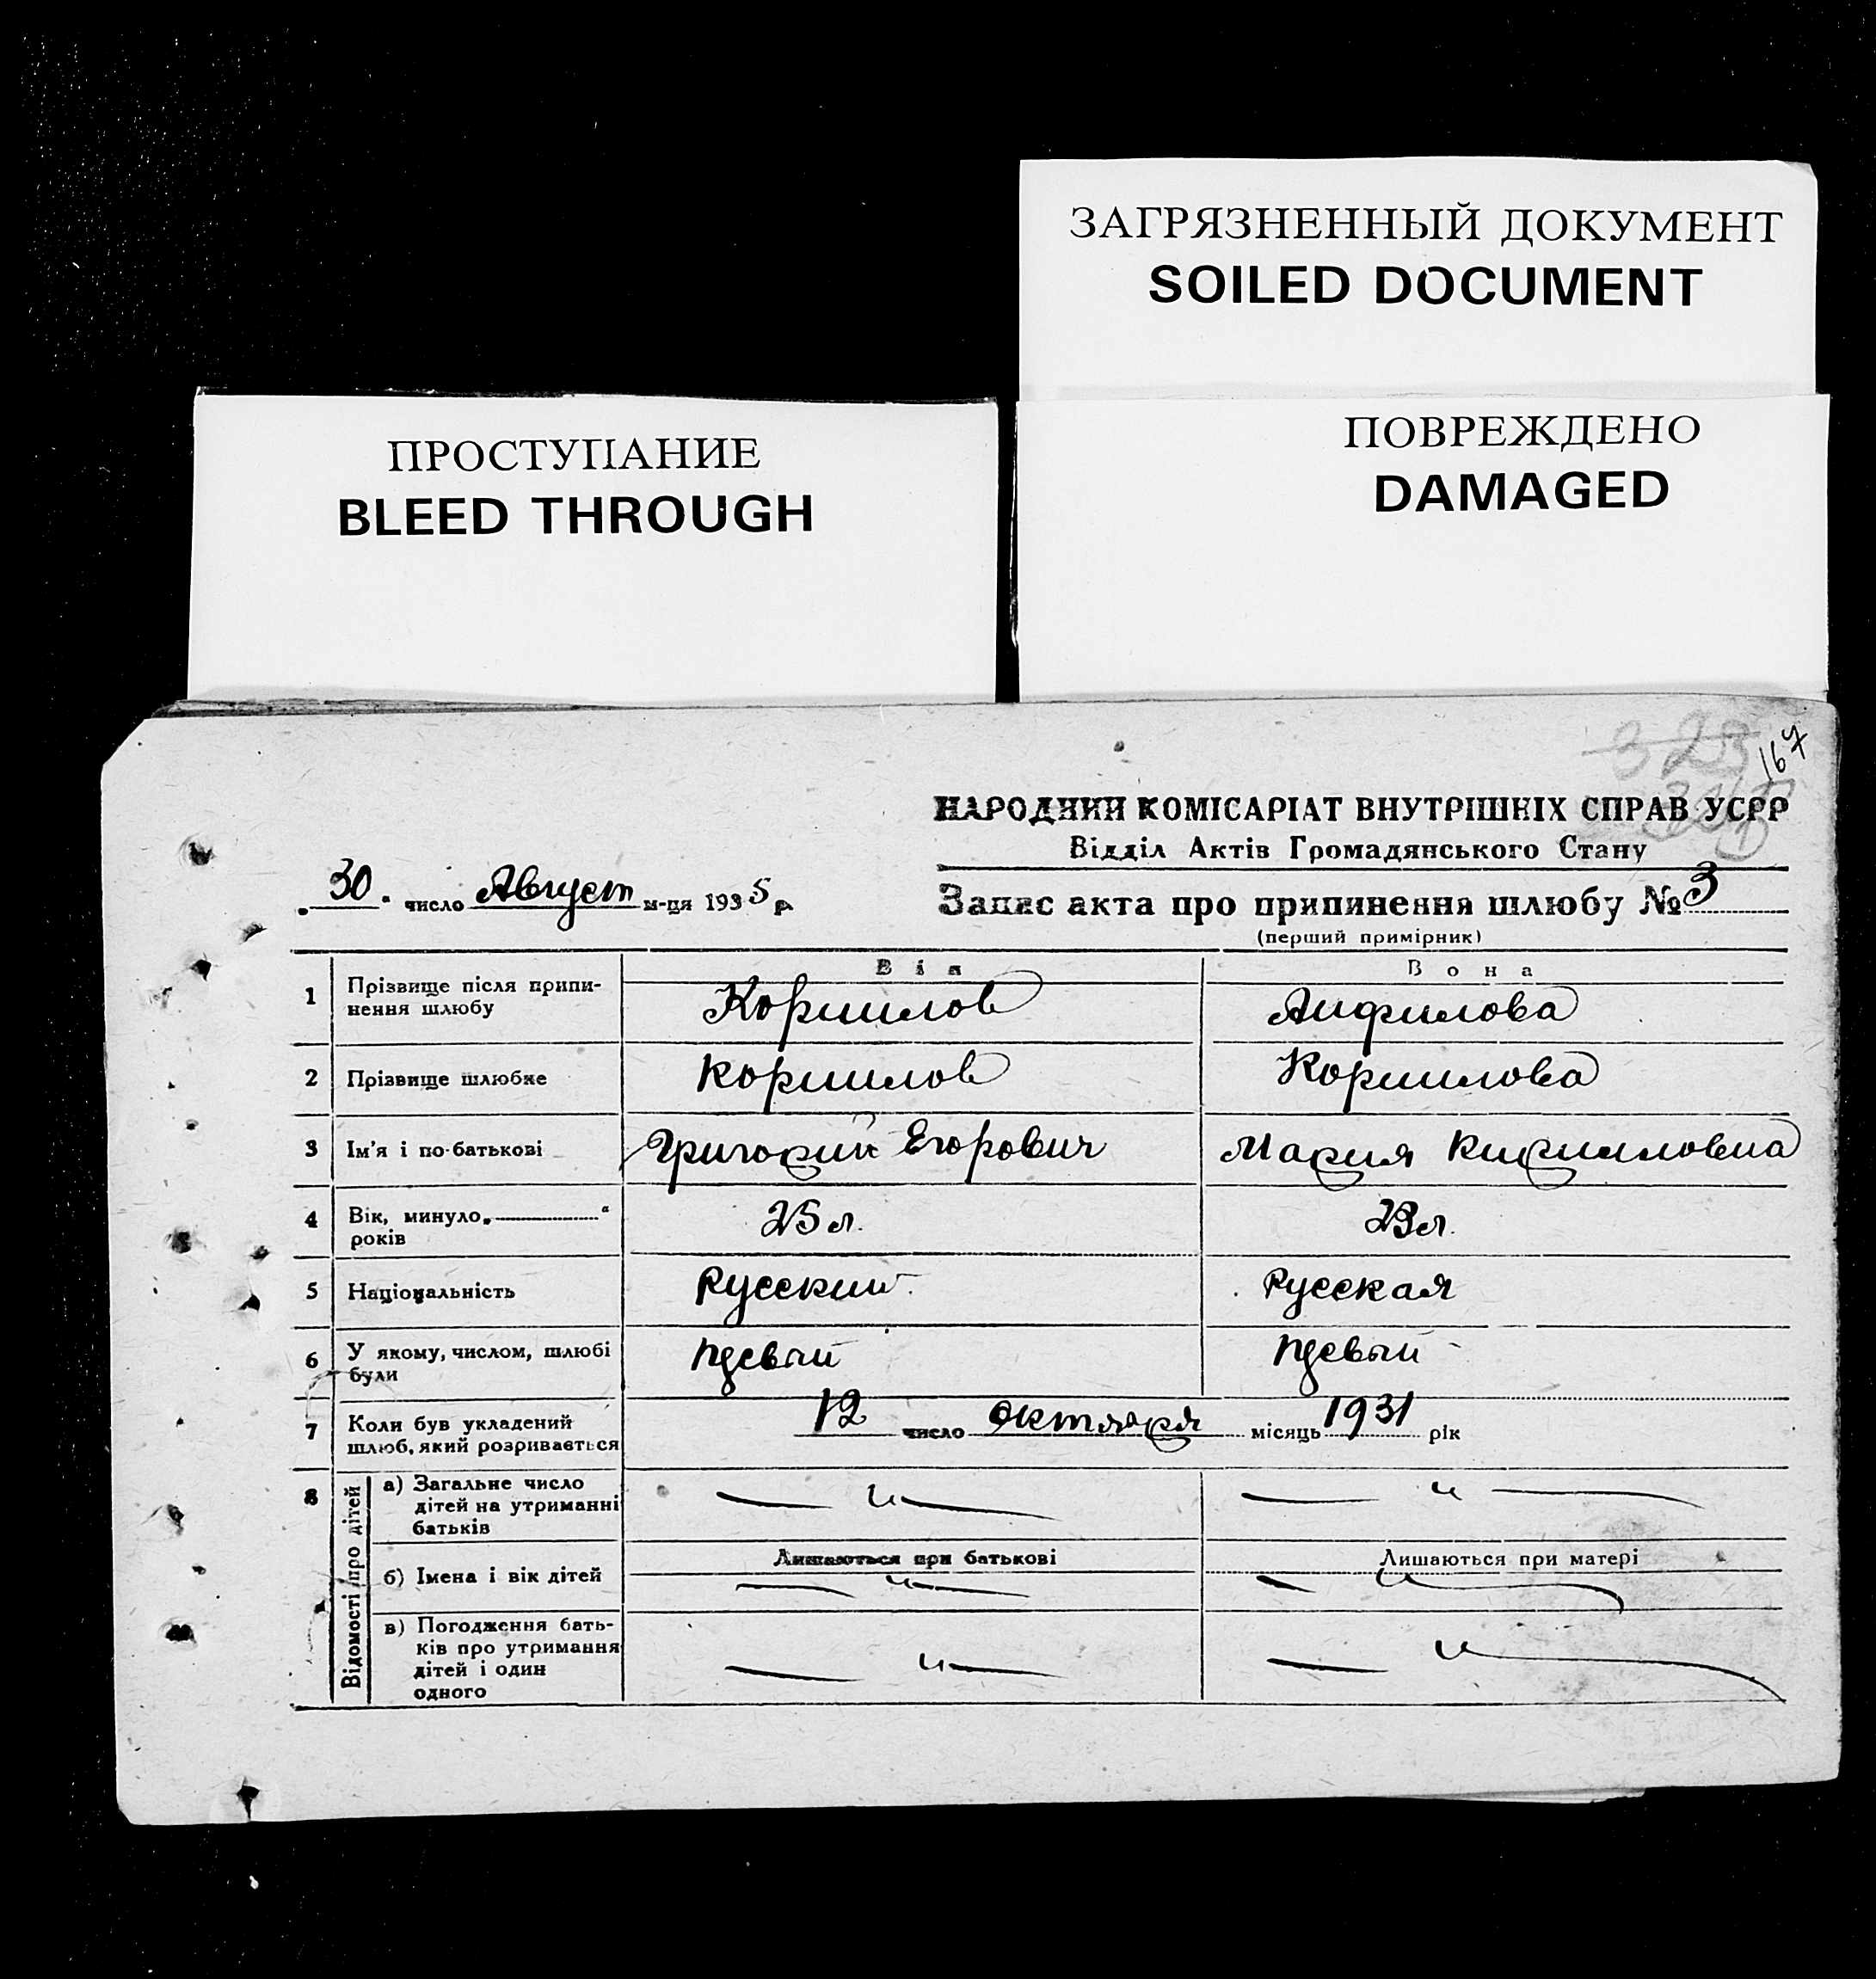 ЗАГРЯЗНЕННЫЙ ДОКУМЕНТ
SOILED DOCUMENT
ПРОСТУПАНИЕ
BLEED THROUGH
ПОВРЕЖДЕНО
DAMAGED
323
167
НАРОДНИЙ КОМІСАРІАТ ВНУТРІШНІХ СПРАВ УСРР
Відділ Актів Громадянського Стану
„30“ число Август м-ця 1935 р.
Запис акта про припинення шлюбу № 3
(перший примірник)
Він Вона
1 Прізвище після припи-
нення шлюбу
Коршилов Анфилова
2 Прізвище шлюбне Коршилов Коршилова
3 Ім'я і по-батькові Григорий Егорович Мария Кирилловна
4 Вік, минуло „ “
років
25 л. 23 л.
5 Національність Русский Русская
6 У якому, числом, шлюбі
були
Первый Первый
7 Коли був укладений
шлюб, який розривається
12 число октября місяць 1931 рік
8 Відомості про дітей
а) Загальне число
дітей на утриманні
батьків
— „ — — „ —
Лишаються при батькові Лишаються при матері
б) Імена і вік дітей — „ — — „ —
в) Погодження бать-
ків про утримання
дітей і один
одного
— „ — — „ —